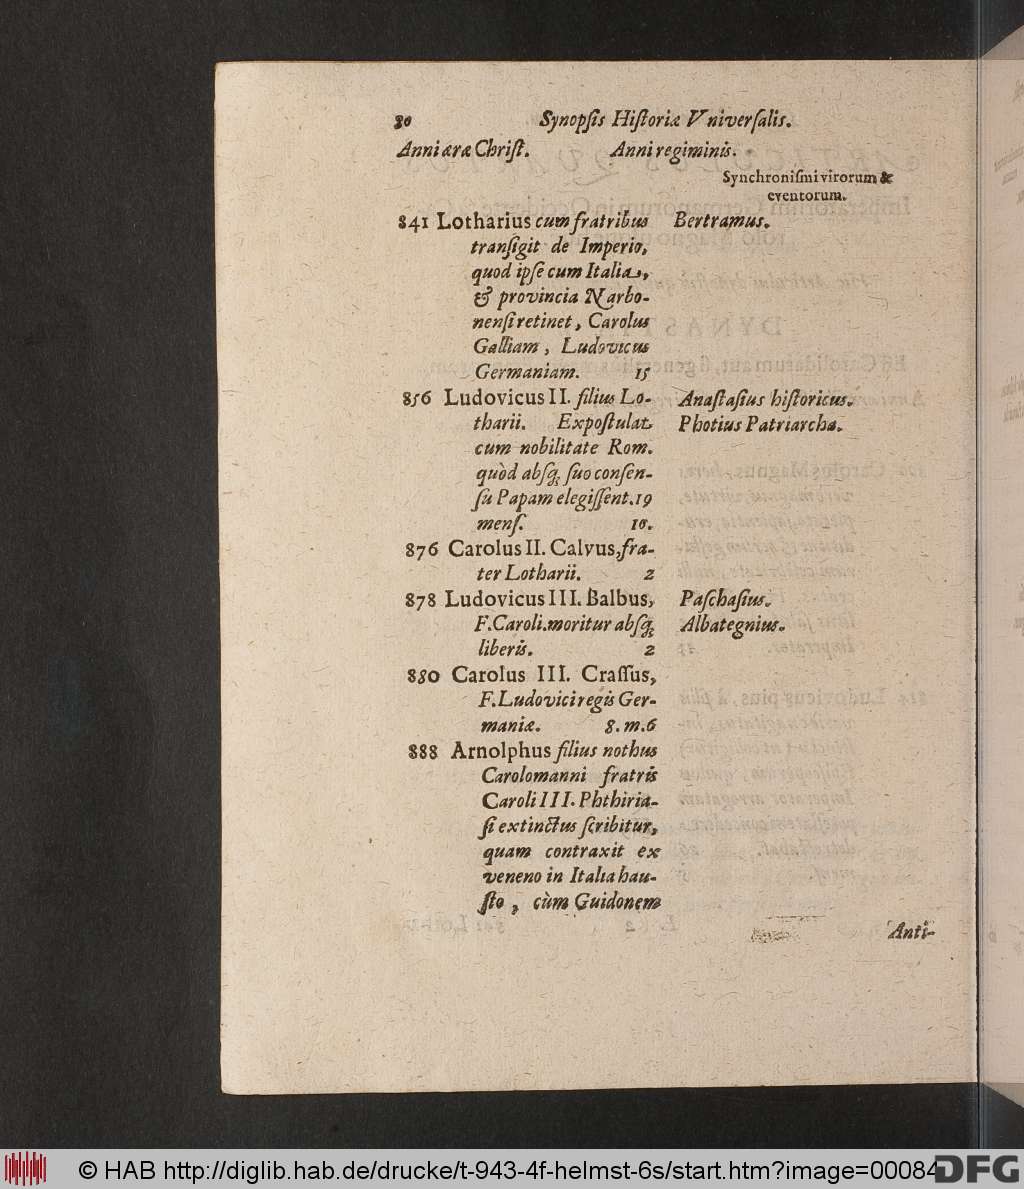 80 Synopſis Hiſtoriæ Vniverſalis.
Anni æræ Chriſt. Anni regiminis.
Synchroniſmi virorum &
eventorum.
841 Lotharius cum fratribus Bertramus.
tranſigit de Imperio,
quod ipſe cum Italia,
& provincia Narbo-
nenſi retinet, Carolus
Galliam, Ludovicus
Germaniam. 15
856 Ludovicus II. filius Lo- Anaſtaſius hiſtoricus.
tharii. Expoſtulat Photius Patriarcha.
cum nobilitate Rom.
quòd abſq; ſuo conſen-
ſu Papam elegiſſent. 19
menſ. 10.
876 Carolus II. Calvus, fra-
ter Lotharii. 2
878 Ludovicus III. Balbus, Paſchaſius.
F. Caroli. moritur abſq; Albategnius.
liberis. 2
880 Carolus III. Craſſus,
F. Ludovici regis Ger-
maniæ. 8. m. 6
888 Arnolphus filius nothus
Carolomanni fratris
Caroli III. Phthiria-
ſi extinctus ſcribitur,
quam contraxit ex
veneno in Italia hau-
ſto, cùm Guidonem
Anti-
© HAB http://diglib.hab.de/drucke/t-943-4f-helmst-6s/start.htm?image=00084
DFG